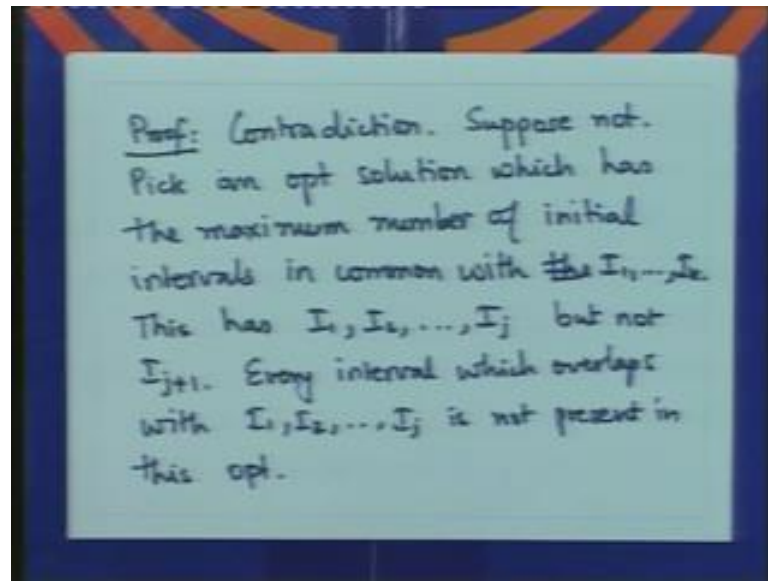 Proof: Contradiction. Suppose not.
Pick an opt solution which has
the maximum number of initial
intervals in common with the I₁,...,Iₖ.
This has I₁, I₂, ..., Iⱼ but not
Iⱼ₊₁. Every interval which overlaps
with I₁, I₂, ..., Iⱼ is not present in
this opt.